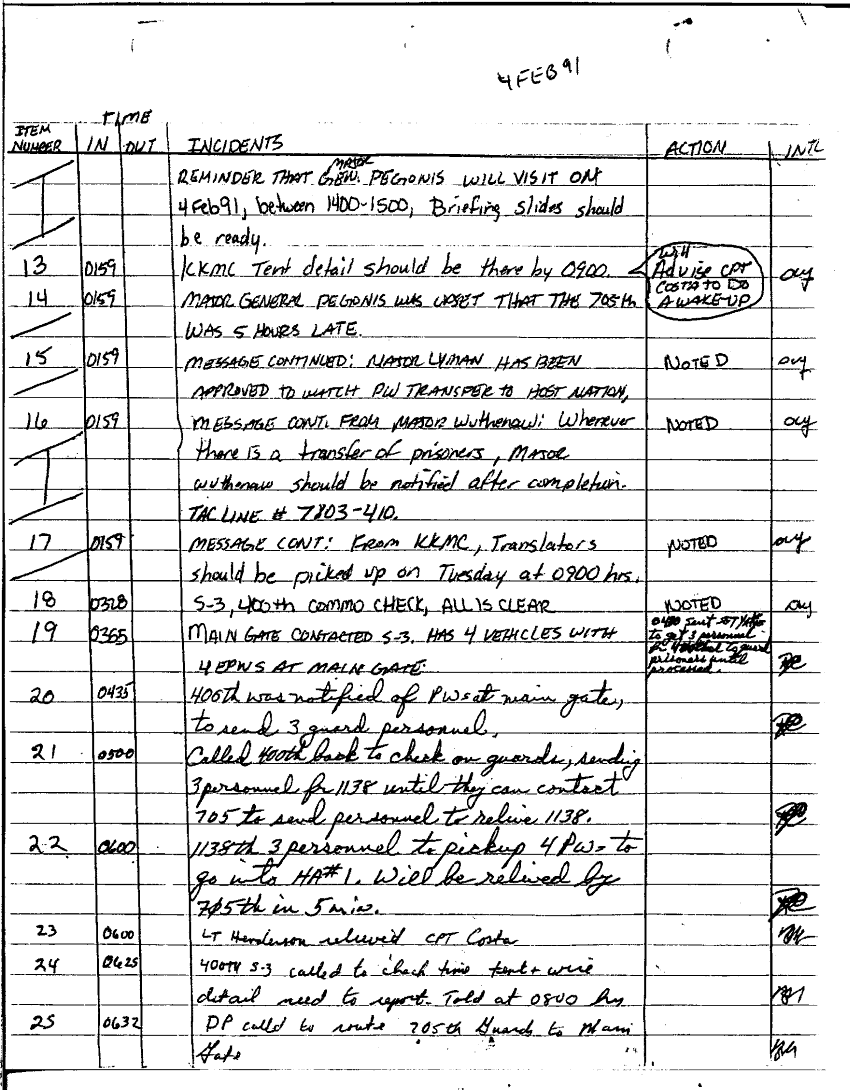 4 FEB 91
TIME
ITEM NUMBER IN OUT INCIDENTS ACTION INTL
MAJOR
REMINDER THAT GEN. PEGONIS WILL VISIT ON
4 Feb 91, between 1400-1500, Briefing slides should
be ready.
13 0159 KKMC Tent detail should be there by 0900. Will Advise CPT COSTA TO DO A WAKE-UP
14 0159 MAJOR GENERAL PEGONIS WAS UPSET THAT THE 705th
WAS 5 HOURS LATE.
15 0159 MESSAGE CONTINUED: MAJOR LYMAN HAS BEEN NOTED
APPROVED TO WATCH PW TRANSFER TO HOST NATION,
16 0159 MESSAGE CONT. FROM MAJOR Wuthenaw: Whenever NOTED
there is a transfer of prisoners, MAJOR
wuthenaw should be notified after completion.
TAC LINE # 7803-410.
17 0159 MESSAGE CONT: From KKMC, Translators NOTED
should be picked up on Tuesday at 0900 hrs.
18 0328 S-3, 400th COMMO CHECK, ALL IS CLEAR NOTED
19 0355 MAIN GATE CONTACTED S-3. HAS 4 VEHICLES WITH
4 EPWS AT MAIN GATE to get 3 personnel to guard prisoners until processed.
20 0435 400th was notified of PWs at main gate,
to send 3 guard personnel.
21 0500 Called 400th back to check on guards, sending
3 personnel fr 1138 until they can contact
705 to send personnel to relive 1138.
22 0600 1138th 3 personnel to pickup 4 PWs to
go into HA#1. Will be relived by
705th in 5 min.
23 0600 LT Henderson relieved CPT Costa
24 0625 400th S-3 called to check time tent + wire
detail need to report. Told at 0800 hrs
25 0632 DP called to route 705th Guards to Main
Gate